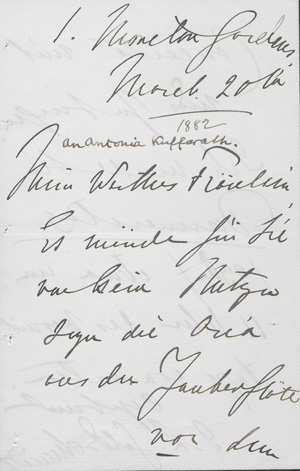 1. Moreton Gardens
March 20th
1882
an Antonia Kufferath.
Mein Werthes Fräulein
Es würde für Sie
von kein Nutzen
sein die Aria
aus der Zauberflöte
vor dem